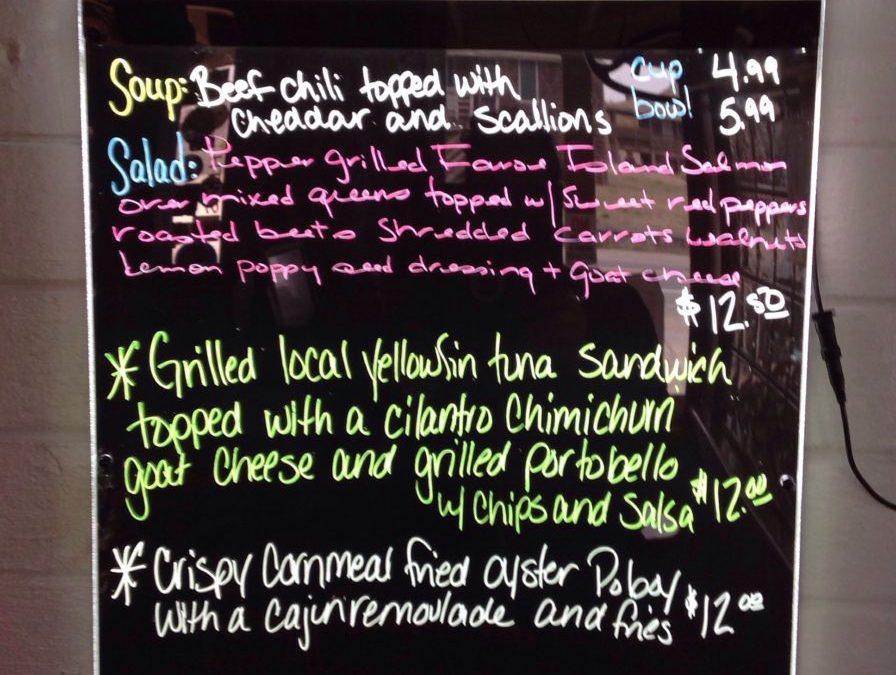 Soup: Beef chili topped with cup 4.99
cheddar and scallions bowl 5.99
Salad: Pepper grilled Faroe Island Salmon
over mixed greens topped w/ Sweet red peppers
roasted beets Shredded carrots walnuts
Lemon poppy seed dressing + goat cheese
$12.50
* Grilled local yellowfin tuna sandwich
topped with a cilantro Chimichurri
goat cheese and grilled portobello
w/ chips and salsa $12.00
* Crispy Cornmeal fried oyster Poboy
with a cajun remoulade and fries $12.00